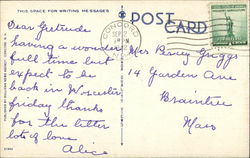 THIS SPACE FOR WRITING MESSAGES
POST CARD
CONCORD
SEP
Dear Gertrude
having a wonder
full time but
expect to be
back in Worcester
friday thanks
for the letter
lots of love
Alice
Mrs Percy Griggs
14 Gardens Ave
Braintree
Mass